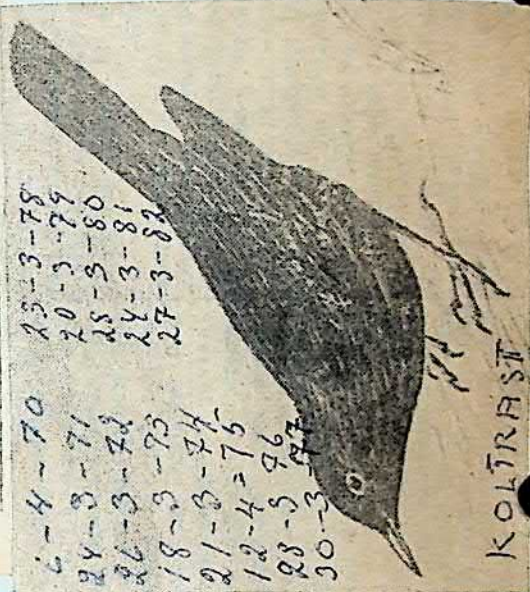 6-4-70
24-3-71
26-3-72
18-3-73
21-3-74
12-4=75
28-3-76
30-3-77
23-3-78
20-3-79
25-3-80
24-3-81
27-3-82
KOLTRAST